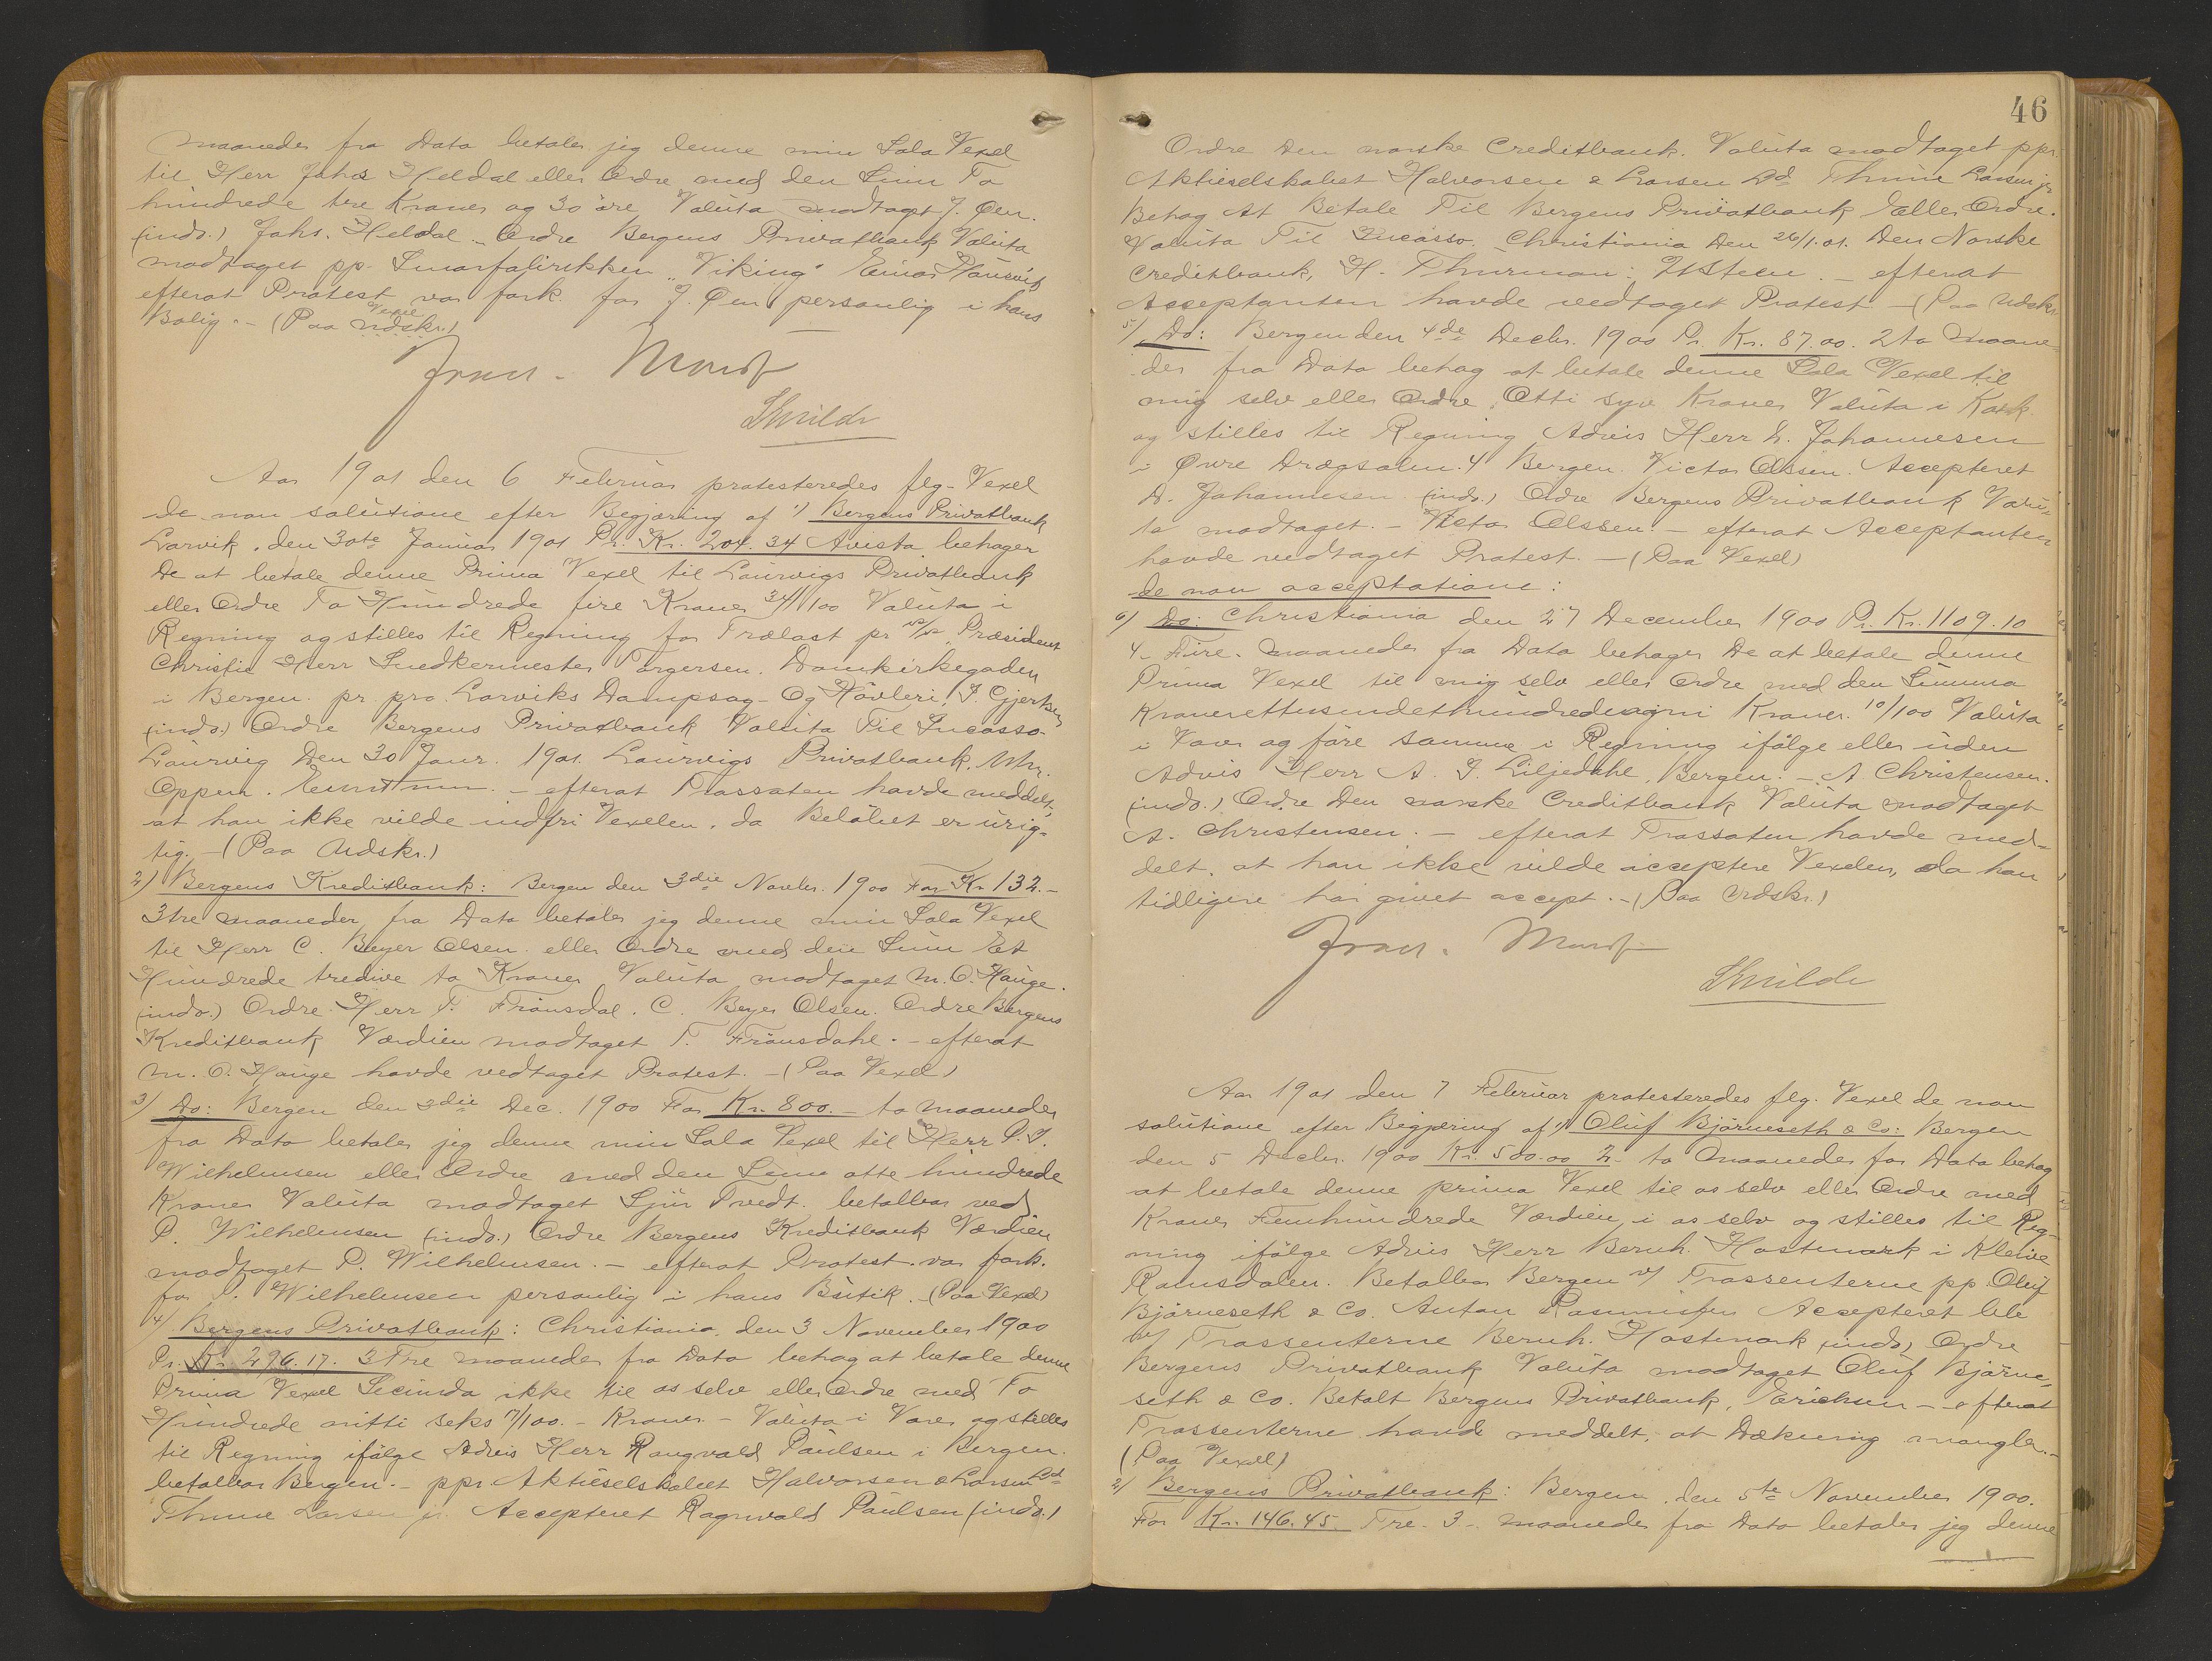 maaneder fra Data betaler jeg denne min Sola Vexel
til Herr Johs Heldal eller Ordre med den Sum To
hundrede tre Kroner og 30 øre Valuta modtaget J. Øen.
(indo.) Johs. Heldal. Ordre Bergens Privatbank Valuta
modtaget pp. Smørfabrikken "Viking" Einar
efterat Protest var fork. for J. Øen personlig i hans
Bolig. - (Paa Vexel Udskr.)
Skuilde
Aar 1901 den 6 Februar protesteredes flg. Vexel
de non solutione efter Begjæring af 1) Bergens Privatbank
Larvik, den 30te Januar 1901 Pr. Kr. 204.34 Avista behager
De at betale denne Prima Vexel til Laurvigs Privatbank
eller Ordre To Hundrede fire Kroner 34/100 Valuta i
Regning og stilles til Regning for Trælast pr s/s Præsident
Christie Herr Snedkermester Torgersen. Domkirkegaden
i Bergen. pr pro. Larviks Dampsag- Og Høvleri, I. Gjertsen
(indo.) Ordre Bergens Privatbank Valuta Til Incasso.
Laurvig Den 30 Janr. 1901. Laurvigs Privatbank.
Oppen. - efterat Trassaten havde meddelt,
at han ikke vilde indfri Vexelen, da Beløbet er urig-
tig. - (Paa Udskr.)
2) Bergens Kreditbank: Bergen den 3die Novbr. 1900 For Kr 132.-
3 tre maaneder fra Data betaler jeg denne min Sola Vexel
til Herr C. Beyer Olsen eller Ordre med den Sum Et
Hundrede tredive to Kroner Valuta modtaget M. O. Hauge.
(indo.) Ordre Herr T. Frønsdal. C. Beyer Olsen. Ordre Bergens
Kreditbank Værdien modtaget T. Frønsdahl. - efterat
M. O. Hauge havde vedtaget Protest. - (Paa Vexel)
3) Do: Bergen den 3die Dec. 1900 For Kr. 800.- to maaneder
fra Data betaler jeg denne min Sola Vexel til Herr P. I.
Wilhelmsen eller Ordre med den Sum otte hundrede
Kroner Valuta modtaget Sjur Tvedt. betalbar ved
P. Wilhelmsen (indo.) Ordre Bergens Kreditbank Værdien
modtaget P. Wilhelmsen. - efterat Protest var fork.
for P. Wilhelmsen personlig i hans Butik. (Paa Vexel)
4) Bergens Privatbank: Christiania, den 3 November 1900
Pr. Kr. 296.17. 3 Tre maaneder fra Data behag at betale denne
Prima Vexel Secunda ikke til os selv eller Ordre med To
Hundrede nitti seks 17/100. - Kroner - Valuta i Varer og stilles
til Regning ifølge Advis Herr Rangvald Paulsen i Bergen.
betalbar Bergen. - ppr. Aktieselskabet Halvorsen & Larsen Ltd
Thune Larsen jr. Accepteret Ragnvald Paulsen (indo.)
46
Ordre Den norske Creditbank. Valuta modtaget ppr.
Aktieselskabet Halvorsen & Larsen Ld Thune Larsen jr
Behag At Betale Til Bergens Privatbank Eller Ordre.
Valuta Til Incasso. Christiania Den 26/1.01. Den Norske
Creditbank, H. Thurman: - efterat
Acceptanten havde vedtaget Protest - (Paa Udskr.
5) Do: Bergen den 4de Decbr. 1900 Pr. Kr. 87.00. 2 to Maane-
der fra Dato behag at betale denne Sola Vexel til
mig selv eller Ordre. Otti syv Kroner Valuta i
og stilles til Regning Advis Herr D. Johannesen
i Øvre Drægsalm. 4 Bergen. Victor Olssen. Accepteret
D. Johannesen (indo.) Ordre Bergens Privatbank Valu-
ta modtaget. - Victor Olssen. - efterat Acceptanten
havde vedtaget Protest. - (Paa Vexel)
de non acceptatione:
6) Do: Christiania den 27 December 1900 Pr. Kr. 1109.10
4 - Fire - maaneder fra Data behager De at betale denne
Prima Vexel til mig selv eller Ordre med den Summa
Kroneretttusindethundredeogni Kroner. 10/100 Valuta
i Varer og føre samme i Regning ifølge eller uden
Advis Herr A. I. Liljedahl, Bergen. - A. Christensen.
(indo.) Ordre Den norske Creditbank Valuta modtaget
A. Christensen. - efterat Trassaten havde med-
delt, at han ikke vilde acceptere Vexelen, da han
tidligere har givet accept. - (Paa Udskr.)
Skuilde
Aar 1901 den 7 Februar protesteredes flg. Vexel de non
solutione efter Begjæring af 1) Oluf Bjørneseth & Co: Bergen
den 5 Decbr. 1900 Kr. 500.00 2. to Maaneder for Data behag
at betale denne prima Vexel til os selv eller Ordre med
Kroner Femhundrede Værdien i os selv og stilles til Reg-
ning ifølge Advis Herr Bernh. Hostmark i Kleive
Romsdalen. Betalbar Bergen v/ Trassenterne pp. Oluf
Bjørneseth & Co. Anton Rasmussen Accepteret
v/ Trassenterne Bernh. Hostmark (indo.) Ordre
Bergens Privatbank Valuta modtaget Oluf Bjørne-
seth & Co. Betalt Bergens Privatbank, Erichsen - efterat
Trassenterne havde meddelt, at Dækning mangler. -
(Paa Vexel)
2) Bergens Privatbank: Bergen, den 5te November 1900.
For Kr. 146.45. Tre - 3 - maaneder fra Data betaler jeg denne